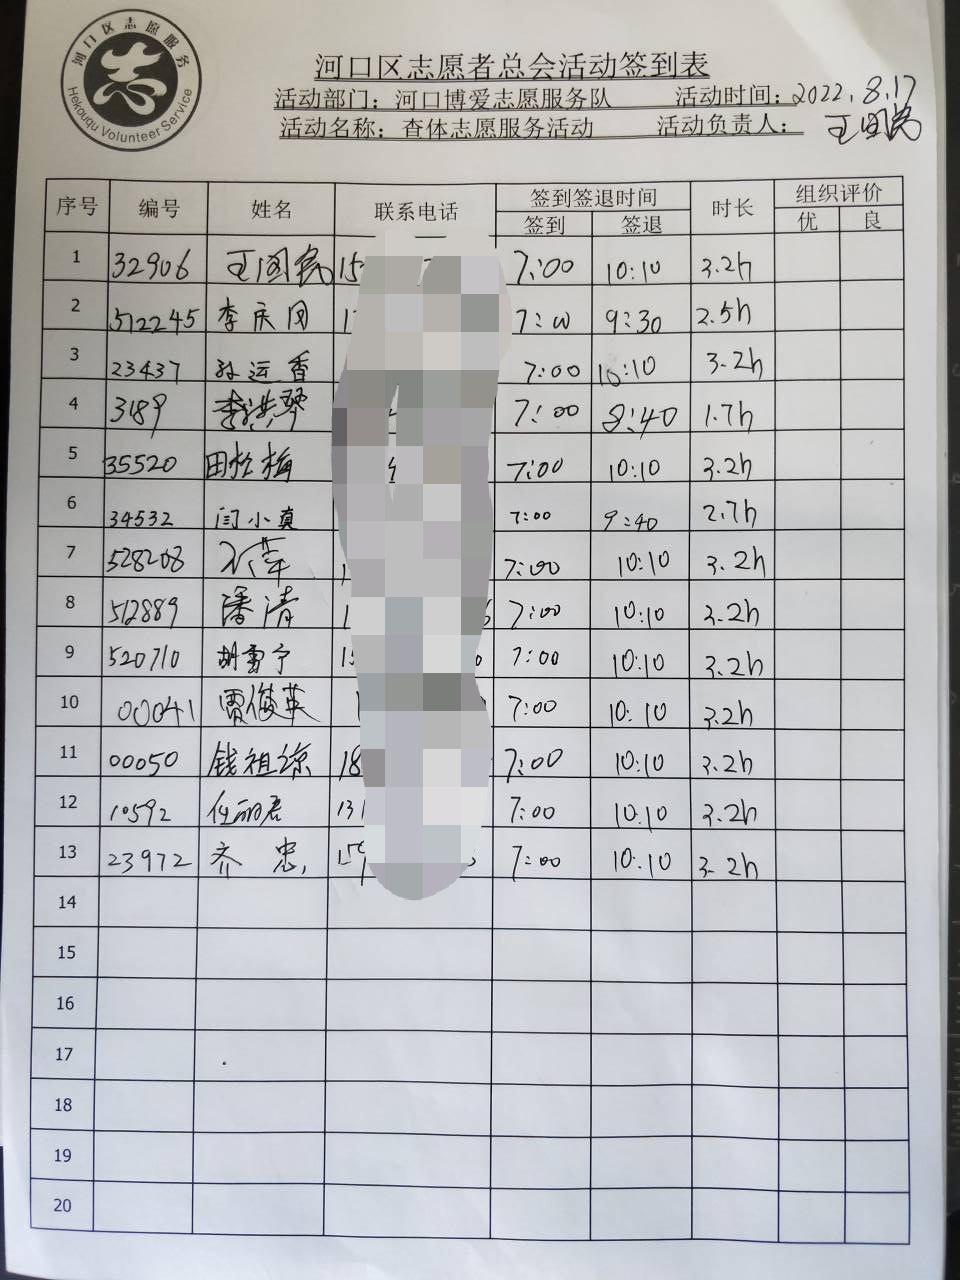 河口区志愿服务
Hekouqu Volunteer Service
志
河口区志愿者总会活动签到表
活动部门：河口博爱志愿服务队 活动时间：2022.8.17
活动名称：查体志愿服务活动 活动负责人：王国民
序号 编号 姓名 联系电话 签到签退时间 时长 组织评价
签到 签退 优 良
1 32906 王国民 15 7:00 10:10 3.2h
2 512245 李庆国 1 7:00 9:30 2.5h
3 23437 孙运香 7:00 10:10 3.2h
4 3189 李洪琴 7:00 8:40 1.7h
5 35520 田松梅 7:00 10:10 3.2h
6 34532 闫小真 7:00 9:40 2.7h
7 528208 7:00 10:10 3.2h
8 512889 潘清 1 7:00 10:10 3.2h
9 520710 胡雪宁 15 7:00 10:10 3.2h
10 00041 贾俊英 7:00 10:10 3.2h
11 00050 钱祖琼 18 7:00 10:10 3.2h
12 10592 任丽君 131 7:00 10:10 3.2h
13 23972 齐忠 159 7:00 10:10 3.2h
14
15
16
17
18
19
20